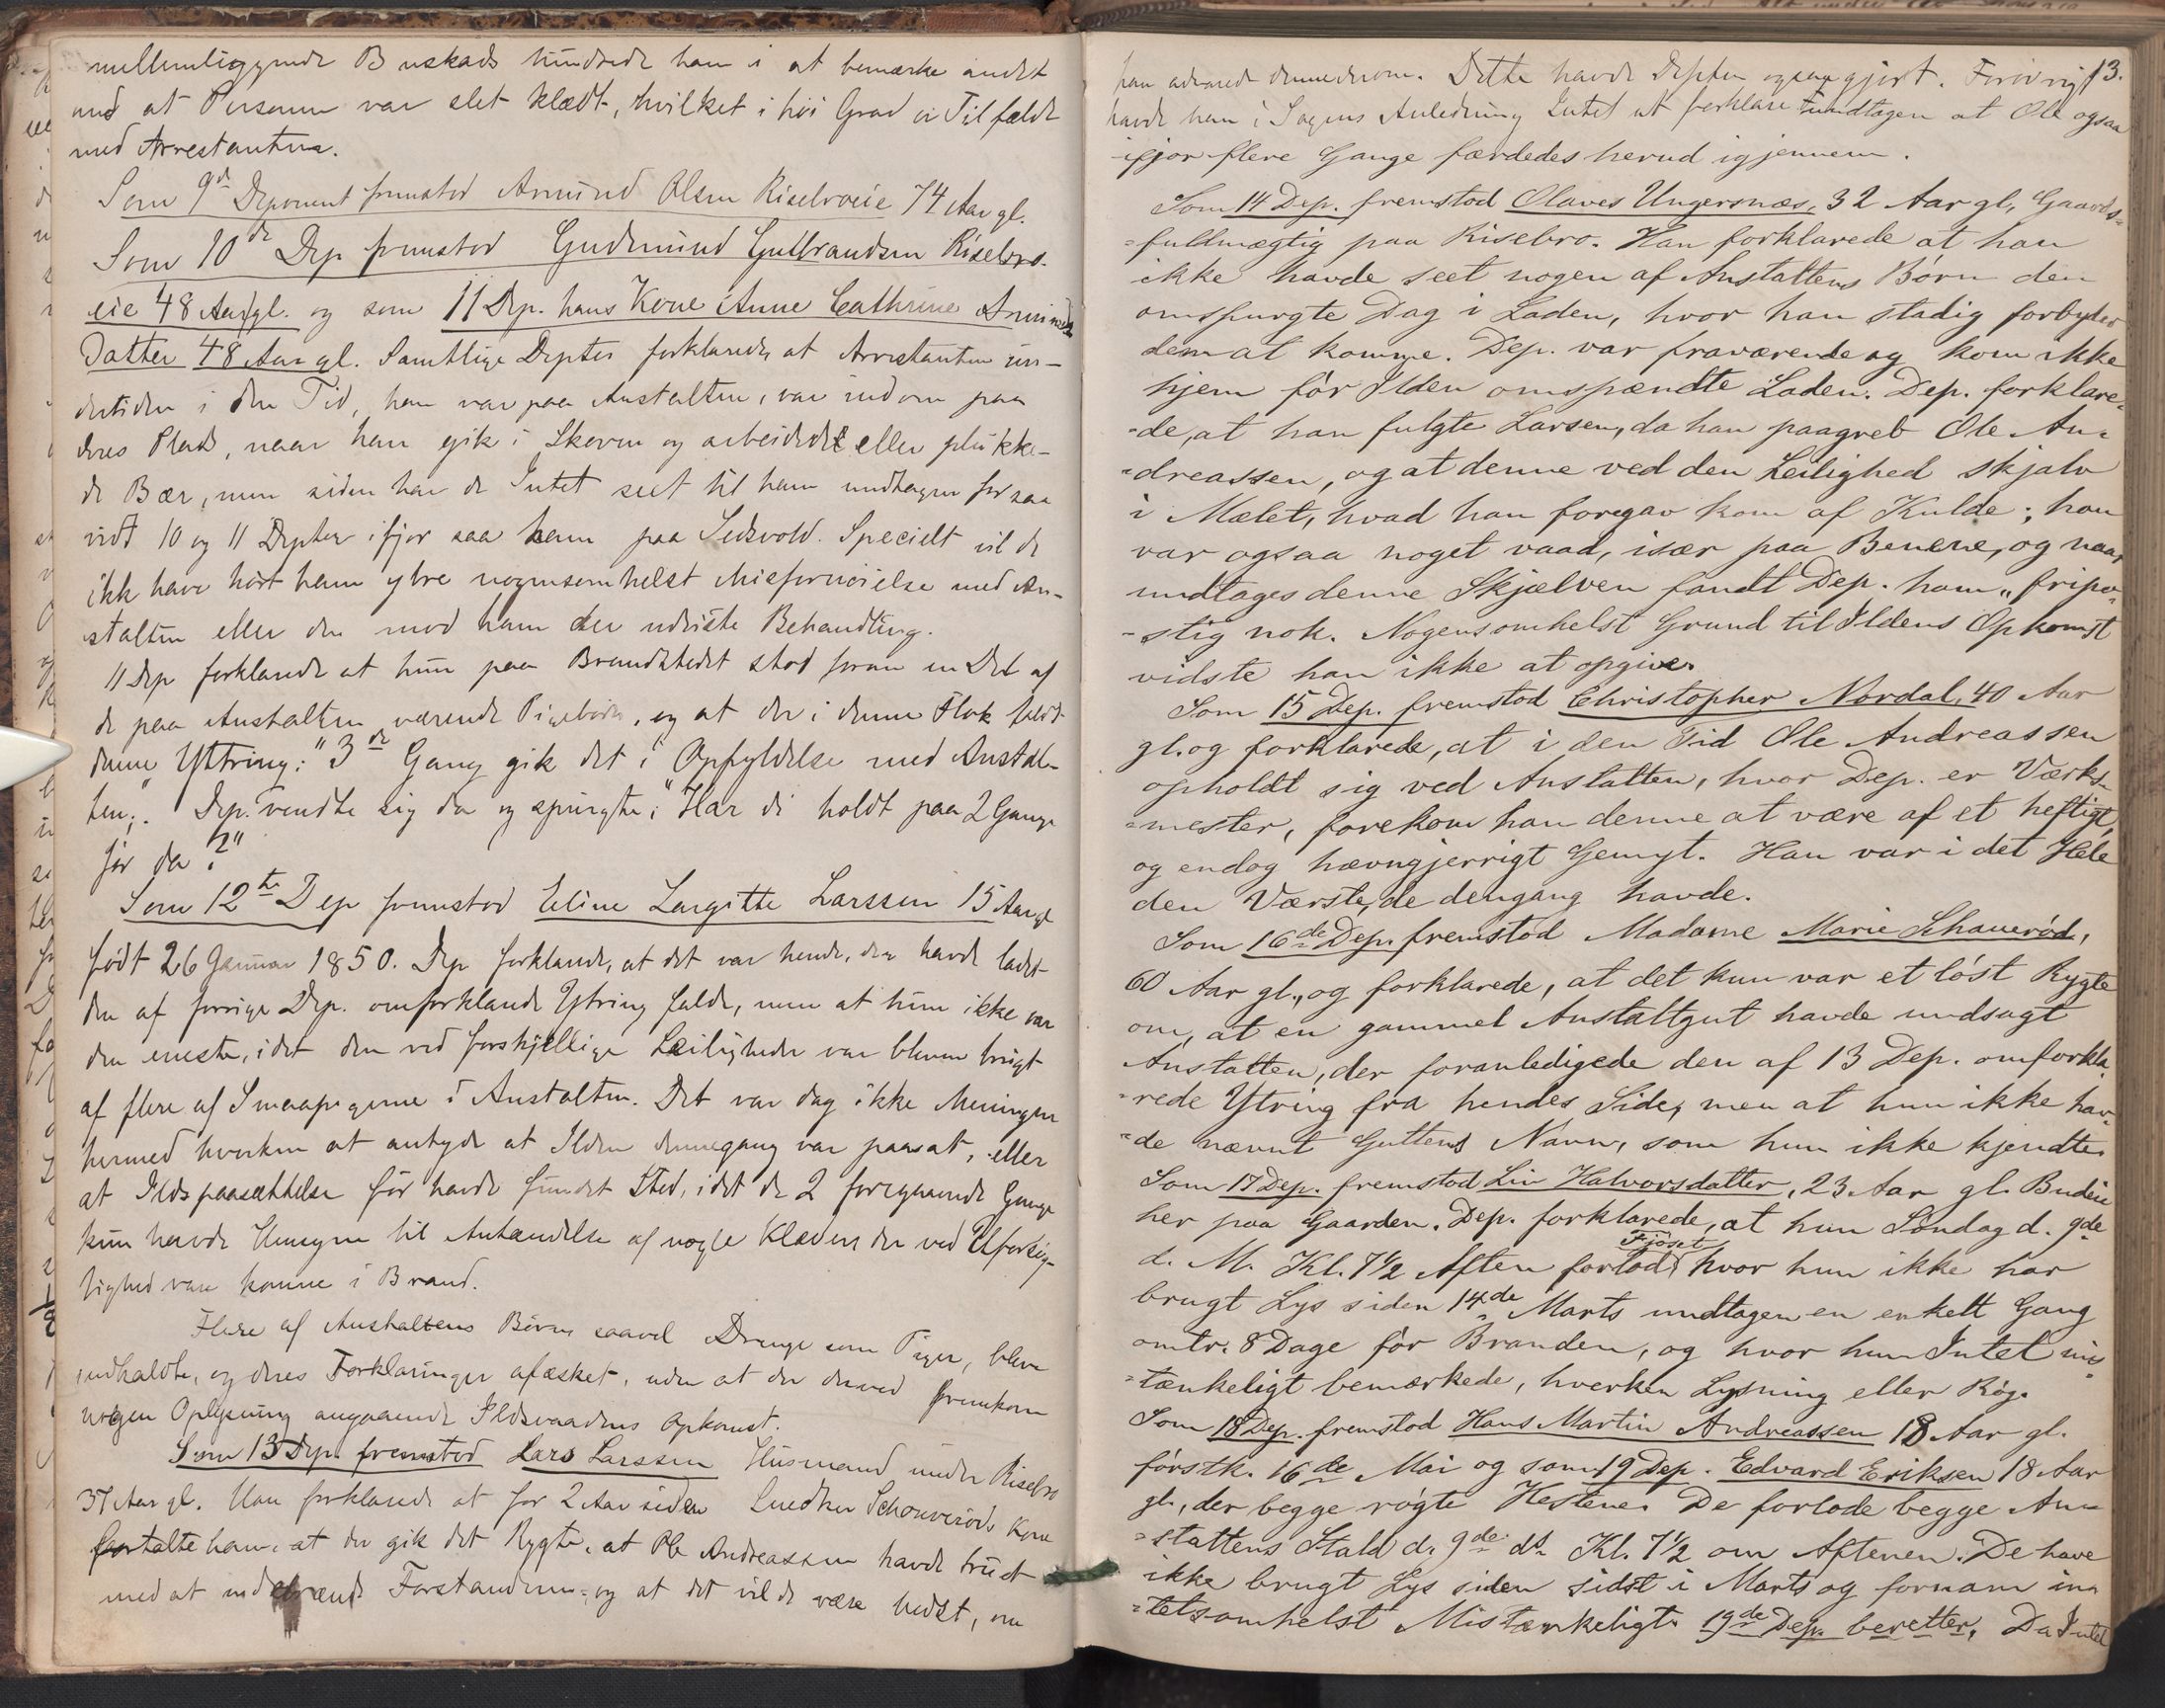 mellemliggende Buskads hindrede ham i at bemærke andet
end at Personen var slet klædt, hvilket i høi Grad er Tilfældet
med Arrestanten.
Som 9de Deponent fremstod Amund Olsen Risebroeie 74 Aar gl.
Som 10de Dep fremstod Gudmund Gulbrandsen Risebro-
eie 48 Aar gl. og som 11 Dep. hans Kone Anne Cathrine Amunds
Datter 48 Aar gl. Samtlige Depter forklarede, at Arrestanten un-
dertiden i den Tid, han var paa Anstalten, var indom paa
deres Plads, naar han gik i Skoven og arbeidede eller plukke-
de Bær, men siden har de Intet seet til ham undtagen forsaa
vidt 10 og 11 Depter ifjor saa ham paa Eidsvold. Specielt vil de
ikke have hørt ham ytre nogensomhelst Misfornøielse med An-
stalten eller den mod ham der udviste Behandling.
11 Dep forklarede at hun paa Brandstedet stod foran en Del af
de paa Anstalten værende Pigebørn, og at der i denne Flok faldt
denne Yttring: "3de Gang gik det i Opfyldelse med Anstal-
ten". Dep. vendte sig da og spurgte: "Har di holdt paa 2 Gange
før da?"
Som 12te Dep fremstod Eline Largitte Larssen 15 Aar gl
født 26 Januar 1850. Dep forklarede, at det var hende, der havde ladet
den af forrige Dep. omforklarede Ytring falde, men at hun ikke var
den eneste, idet den ved forskjellige Leiligheder var bleven brugt
af flere af Smaapigerne i Anstalten. Det var dog ikke Meningen
hermed hverken at antyde at Ilden dennegang var paasat, eller
at Ildspaasættelse før havde fundet Sted, idet de 2 foregaaende Gange
kun havde Hensyn til Antændelse af nogle Klæder der ved Uforsig-
tighed vare komne i Brand.
Flere af Anstaltens Børn saavel Drenge som Piger, bleve
indkaldte, og deres Forklaringer afæsket, uden at der derved fremkom
nogen Oplysning angaaende Ildsvaadens Opkomst.
Som 13 Dep. fremstod Lars Larssen Husmand under Risebro
37 Aar gl. Han forklarede at for 2 Aar siden Snedker Schouerøds Kone
fortalte ham, at der gik det Rygte, at Ole Andreassen havde truet
med at indebrænde Forstanderen, og at det vilde være bedst, om
13.
han advared denne derom. Dette havde Depten ogsaa gjort. Forøvrigt
havde han i Sagens Anledning Intet at forklare undtagen at Ole ogsaa
ifjor flere Gange færdedes herud igjennem.
Som 14 Dep. fremstod Olaves Ungersnæs, 32 Aar gl, Gaards-
=fuldmægtig paa Risebro. Han forklarede at han
ikke havde seet nogen af Anstaltens Børn den
omspurgte Dag i Laden, hvor han stadig forbyder
dem at komme. Dep. var fraværende og kom ikke
hjem før Ilden omspændte Laden. Dep. forklare=
=de, at han fulgte Larsen, da han paagreb Ole An=
=dreassen, og at denne ved den Leilighed skjalv
i Mælet, hvad han foregav kom af Kulde; han
var ogsaa noget vaad, især paa Benene, og naar
undtages denne Skjælven fandt Dep. ham "fripo=
=stig nok. Nogensomhelst Grund til Ildens Opkomst
vidste han ikke at opgive.
Som 15 Dep. fremstod Christopher Nordal, 40 Aar
gl. og forklarede, at i den Tid Ole Andreassen
opholdt sig ved Anstalten, hvor Dep. er Værks=
=mester, forekom han denne at være af et heftigt,
og endog hævngjerrigt Gemyt. Han var i det Hele
den Værste, de dengang havde.
Som 16de Dep. fremstod Madame Marie Schauerød,
60 Aar gl., og forklarede, at det kun var et løst Rygte
om, at en gammel Anstaltgut havde undsagt
Anstalten, der foranledigede den af 13 Dep. omforkla=
=rede Ytring fra hendes Side, men at hun ikke hav=
=de nævnt Guttens Navn, som hun ikke kjendte.
Som 17 Dep. fremstod Liv Halvorsdatter, 23 Aar gl. Budeie
her paa Gaarden. Dep. forklarede, at hun Søndag d. 9de
d. M. Kl. 7½ Aften forlod Fjøset hvor hun ikke har
brugt Lys siden 14de Marts undtagen en enkelt Gang
omtr. 8 Dage før Branden, og hvor hun Intet mis
=tænkeligt bemærkede, hverken Lysning eller Røg.
Som 18 Dep. fremstod Hans Martin Andreassen 18 Aar gl.
førstk. 16de Mai og som 19 Dep. Edvard Eriksen 18 Aar
gl., der begge røgte Hestene. De forlode begge An=
=staltens Stald d. 9de ds. Kl. 7½ om Aftenen. De have
ikke brugt Lys siden sidst i Marts og fornam in=
=tetsomhelst Mistænkeligt. 19de Dep. beretter, Da Intet